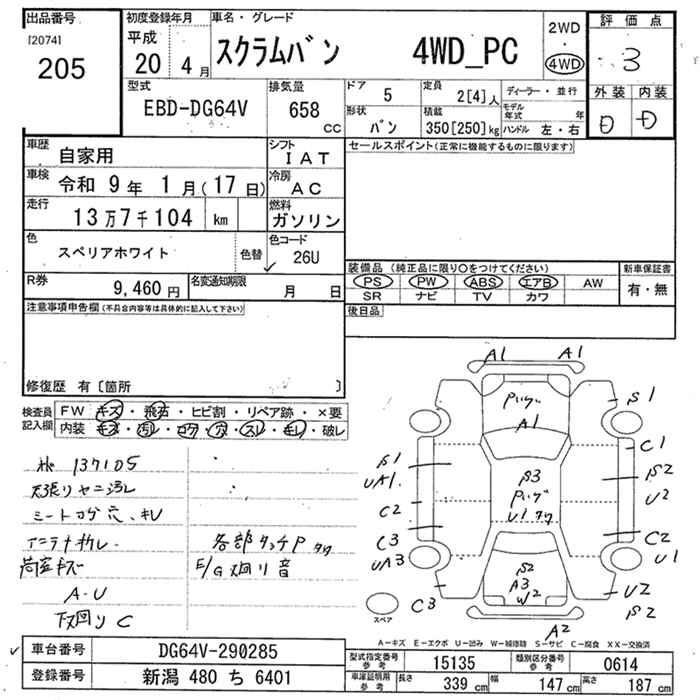 出品番号
[2074]
205
初度登録年月
平成
20 4 月
車名・グレード
スクラムバン 4WD_PC
2WD
・
4WD
評価点
3
外装 内装
D D
型式
EBD-DG64V
排気量
658 CC
ドア
5
定員
2[4]人
形状
バン
積載
350[250]kg
ディーラー・並行
モデル年式 年
ハンドル 左・右
車歴
自家用
シフト
IAT
車検
令和 9年 1月(17日)
冷房
AC
走行
13万7千104 km
燃料
ガソリン
色
スペリアホワイト
色替
色コード
26U
R券
9,460円
名変通知期限
月 日
セールスポイント(正常に機能するものに限ります)
装備品(純正品に限り○をつけてください)
PS PW ABS エアB AW
SR ナビ TV カワ
新車保証書
有・無
後日品
注意事項申告欄(不具合内容等は具体的に記入して下さい)
修復歴 有〔箇所 〕
検査員記入欄
FW キズ・飛石・ヒビ割・リペア跡・×要
内装 キズ・汚レ・コゲ・穴・スレ・キレ・破レ
137105
天張りヤニ汚レ
シートコゲ穴、キレ
アンテナ折レ
各部タッチP
荷室キズ
E/G廻り音
A-U
下廻りC
A1 A1
A1
S1
C1
S2
U2
C2
U1
U2
S2
S1
UA1
C2
C3
UA3
C3
S3
S2
A3
W2
A2
スペア
A-キズ E-エクボ U-凹み W-補修跡 S-サビ C-腐食 XX-交換済
車台番号
DG64V-290285
登録番号
新潟 480 ち 6401
型式指定番号
参考
15135
類別区分番号
参考
0614
車庫証明用
参考
長さ
339 cm
幅
147 cm
高さ
187 cm